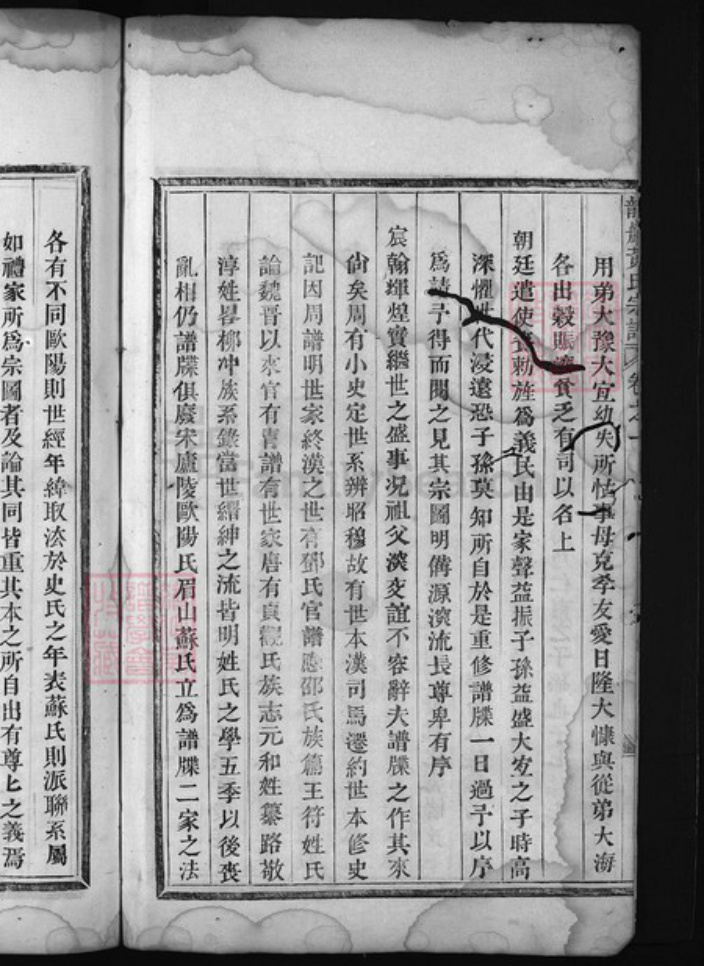 用弟大豫大宜幼失所怙事母克孝友愛日隆大慷與從弟大海
各出穀賑濟貧乏有司以名上
朝廷遣使賫勅旌為義民由是家聲益振子孫益盛大之子時高
深懼世代浸遠恐子孫莫知所自於是重修譜牒一日過予以序
為請予得而閱之見其宗圖明備源深流長尊卑有序
宸翰煇煌實繼世之盛事况祖父深交誼不容辭夫譜牒之作其來
尙矣周有小史定世系辨昭穆故有世本漢司馬遷約世本修史
記因周譜明世家終漢之世有鄧氏官譜應邵氏族篇王符姓氏
論魏晉以來官有書譜有世家唐有貞觀氏族志元和姓纂路敬
淳姓畧柳冲族系錄當世縉紳之流皆明姓氏之學五季以後喪
亂相仍譜牒俱廢宋廬陵歐陽氏眉山蘇氏立為譜牒二家之法
各有不同歐陽則世經年緯取法於史氏之年表蘇氏則派聯系屬
如禮家所為宗圖者及論其同皆重其本之所自出有尊匕之義焉
氏宗譜 卷之一